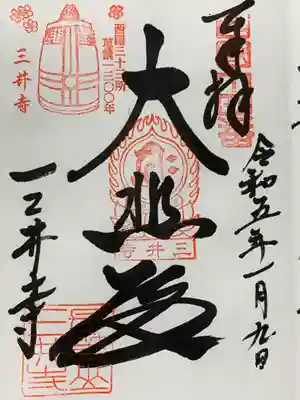 奉拝
令和五年一月九日
西国三十三所
草創一三〇〇年
三井寺
大悲殿
三井寺
三井寺